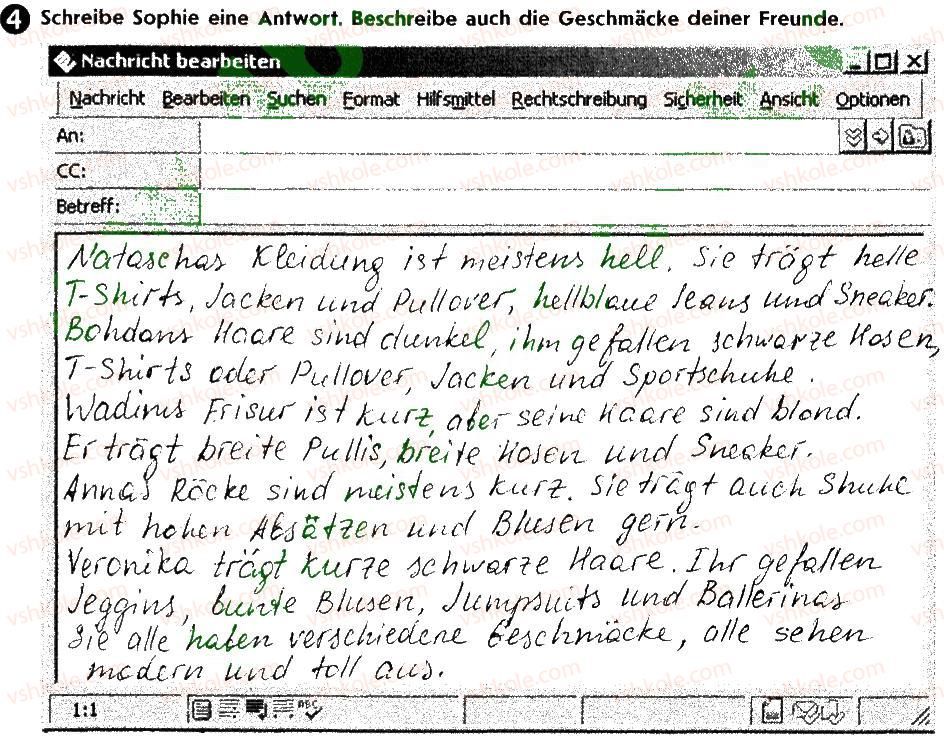 4 Schreibe Sophie eine Antwort. Beschreibe auch die Geschmäcke deiner Freunde.
Nachricht bearbeiten
Nachricht Bearbeiten Suchen Format Hilfsmittel Rechtschreibung Sicherheit Ansicht Optionen
An:
CC:
Betreff:
Nataschas Kleidung ist meistens hell. Sie trägt helle
T-Shirts, Jacken und Pullover, hellblaue Jeans und Sneaker.
Bohdans Haare sind dunkel, ihm gefallen schwarze Hosen,
T-Shirts oder Pullover, Jacken und Sportschuhe.
Wadims Frisur ist kurz, aber seine Haare sind blond.
Er trägt breite Pullis, breite Hosen und Sneaker.
Annas Röcke sind meistens kurz. Sie trägt auch Shuhe
mit hohen Absätzen und Blusen gern.
Veronika trägt kurze schwarze Haare. Ihr gefallen
Jeggins, bunte Blusen, Jumpsuits und Ballerinas
Sie alle haben verschiedene Geschmäcke, alle sehen
modern und toll aus.
1:1